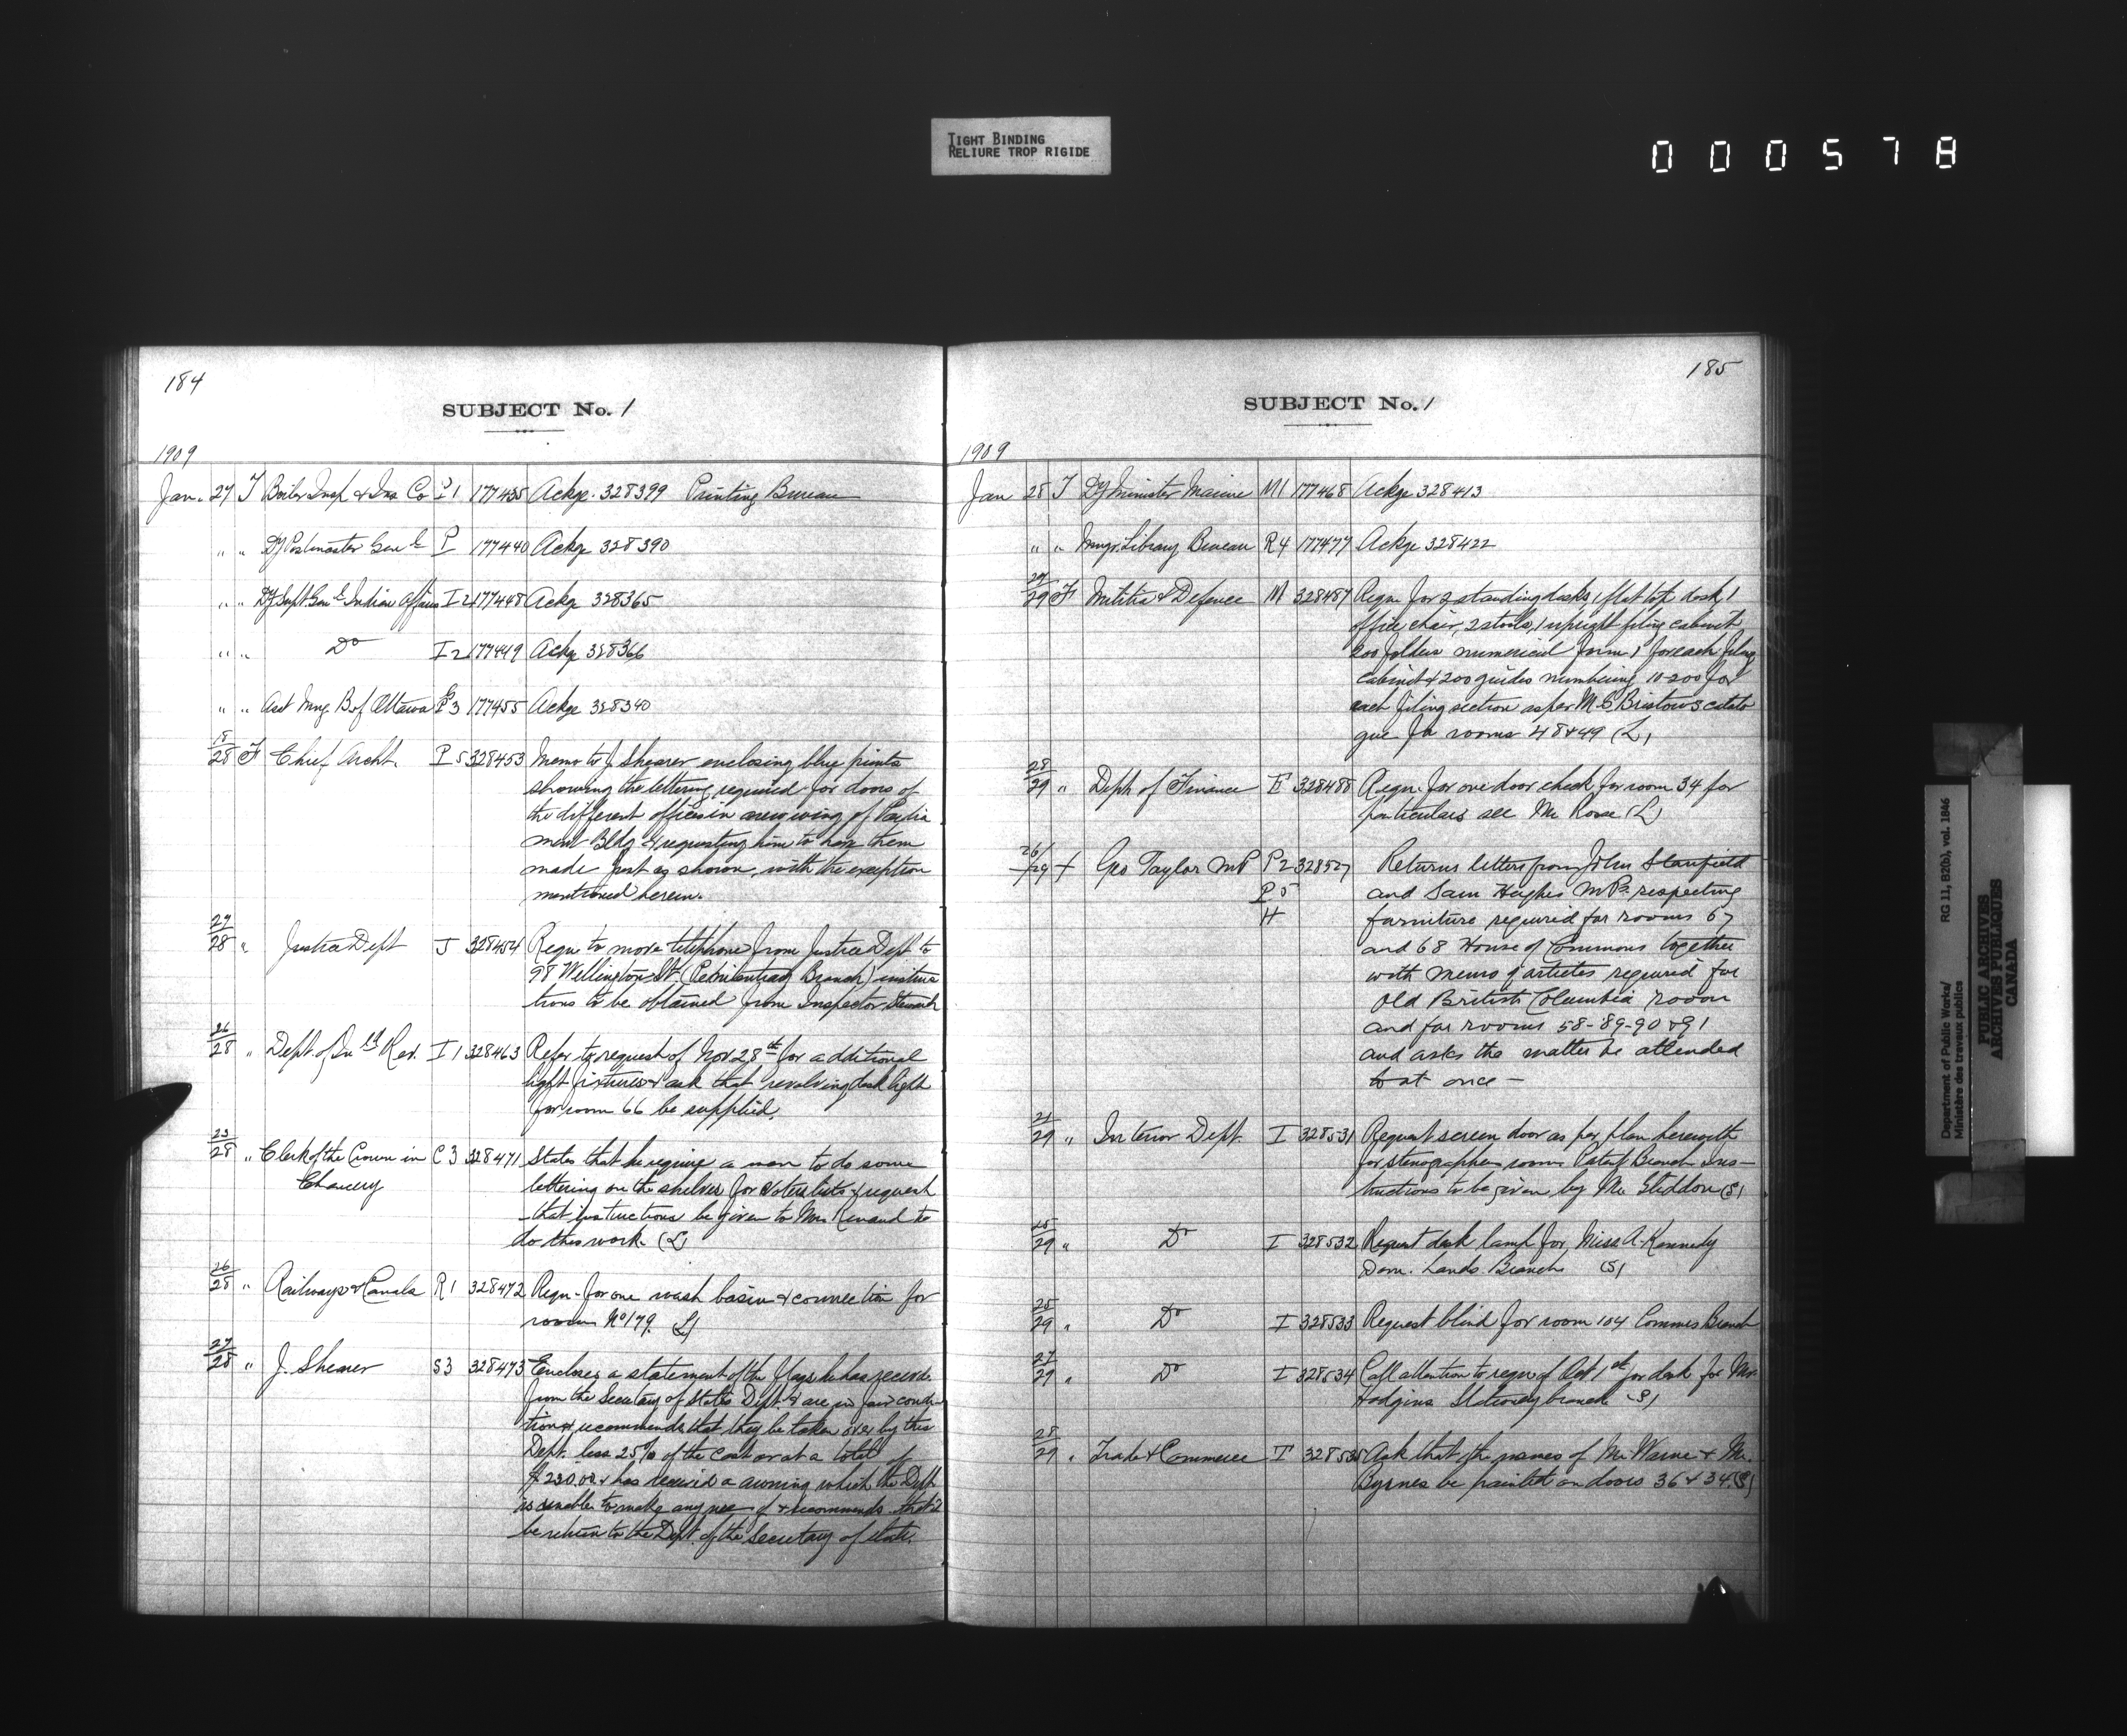 TIGHT BINDING
RELIURE TROP RIGIDE
000578
184
SUBJECT No. 1
1909
Jan. 27 T Boiler Insp & Ins Co I 1 177435 Ackge. 328399 Printing Bureau
" " Dy Postmaster Genl P 177440 Ackge 328390
" " Dy Supt Genl Indian Affairs I 2 177448 Ackge 328365
" " Do I 2 177449 Ackge 328366
" " Asst Mng B of Ottawa P3 177455 Ackge 328340
18/28 F Chief Archt. P 5 328453 Memo to J Shearer enclosing blue prints
showing the lettering required for doors of
the different offices in new wing of Parlia
ment Bldg & requesting him to have them
made just as shown, with the exception
mentioned herein.
27/28 " Justice Dept J 328454 Requn to move telephone from Justice Dept to
98 Wellington St. (Penitentiary Branch) instruc
tions to be obtained from Inspector Stewart
26/28 " Dept. of Inld Rev. I 1 328463 Refer to request of Nov 28th for additional
light fixtures & ask that revolving desk light
for room 66 be supplied.
23/28 " Clerk of the Crown in C 3 328471 States that he require a man to do some
Chancery lettering on the shelves for voters lists & request
that instructions be given to Mr Renaud to
do this work. (L)
26/28 " Railways & Canals R 1 328472 Requn. for one wash basin & connection for
room No 179. (L)
27/28 " J. Shearer S3 328473 Encloses a statement of the flags he has receivd.
from the Secretary of States Dept. & are in fair condi-
tion & recommends that they be taken over by this
Dept. less 25% of the cost or at a total of
$230.00 & has received a awning which the Dept
is unable to make any use of & recommends that it
be return to the Dept. of the Secretary of state.
185
SUBJECT No. 1
1909
Jan 28 T Dy Minister Marine M1 177468 Ackge 328413
" " Mngr. Library Bureau R4 177477 Ackge 328422
27/29 F Militia & Defence M 328487 Requn for 2 standing desks, 1 flat top desk, 1
office chair, 2 stools, 1 upright filing cabinet
200 folders numerical form 1 for each filing
cabinet & 200 guides numbering 10-200 for
each filing section as per M.C Bristows catalo
gue for rooms 48 & 49 (L)
28/29 " Dept of Finance F 328488 Requn. for one door check for room 34 for
particulars see Mr Rowe (L)
26/29 + Geo Taylor MP P2 328527 Returns letters from John Stanfield
P5 and Sam Hughes M.Ps. respecting
H furniture required for rooms 67
and 68 House of Commons together
with memo of articles required for
Old British Columbia room
and for rooms 58-89-90 & 91
and asks the matter be attended
to at once -
21/29 " Interior Dept. I 328531 Request screen door as per plan herewith
for stenographers room Patent Branch Ins-
tructions to be given by Mr Sliddon (S)
25/29 " Do I 328532 Request desk lamp for Miss A. Kennedy
Dom. Lands Branch (S)
25/29 " Do I 328533 Request blind for room 104 Commrs Branch
27/29 " Do I 328534 Call attention to requn of Oct 1st for desk for Mr.
Hodgins Stationery branch (S)
28/29 " Trade & Commerce T 328535 Ask that the names of Mr Warne & Mr.
Byrnes be painted on doors 36 & 34. (S)
Department of Public Works/ RG 11, B2(b), vol. 1846
Ministère des travaux publics
PUBLIC ARCHIVES
ARCHIVES PUBLIQUES
CANADA